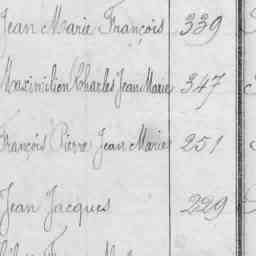 Jean Marie François 339
Maximilien Charles Jean Marie 347
François Pierre Jean Marie 251
Jean Jacques 229